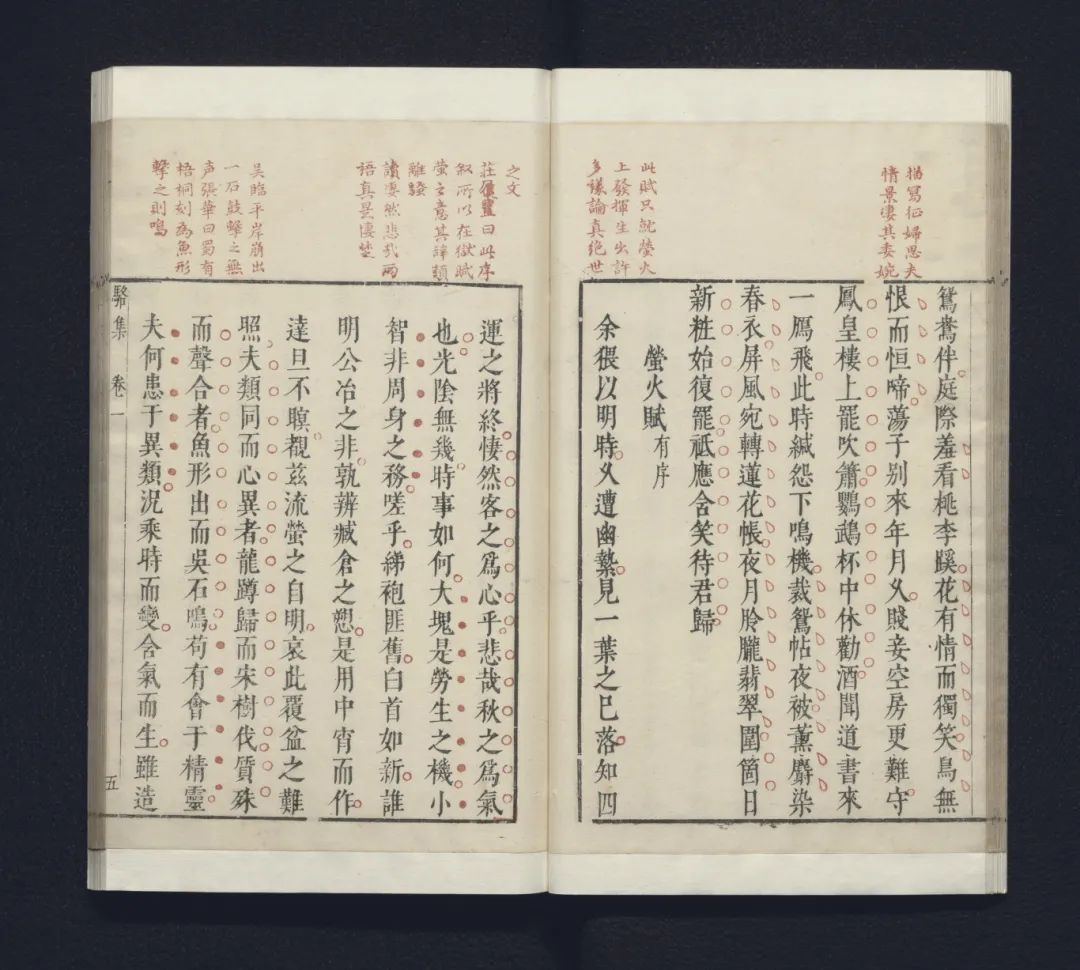 描寫征婦思夫
情景悽其委婉
此賦只就螢火
上發揮生出許
多議論真絕世
鴛鴦伴庭際羞看桃李蹊花有情而獨笑鳥無
恨而恒啼蕩子别來年月乆賤妾空房更難守
鳳皇樓上罷吹簫鸚鵡杯中休勸酒聞道書來
一鴈飛此時緘怨下鳴機裁鴛帖夜被薰麝染
春衣屏風宛轉蓮花帳夜月朎朧翡翠圍箇日
新粧始復罷祇應含笑待君歸
螢火賦有序
余猥以明時乆遭幽縶見一葉之已落知四
之文
曰此序
叙所以在獄賦
螢之意其諱類
離騷
讀悽然悲哉兩
語真是悽
吴臨平岸崩出
一石鼓擊之無
声張華曰蜀有
梧桐刻為魚形
擊之則鳴
運之將終悽然客之爲心乎悲哉秋之爲氣
也光陰無幾時事如何大塊是勞生之機小
智非周身之務嗟乎綈袍匪舊白首如新誰
明公冶之非孰辨臧倉之愬是用中宵而作
達旦不瞑覩茲流螢之自明哀此覆盆之難
照夫類同而心異者龍蹲歸而宋樹伐質殊
而聲合者魚形出而吳石鳴苟有會于精靈
夫何患于異類况乘時而變含氣而生雖造
駱集 卷一 五